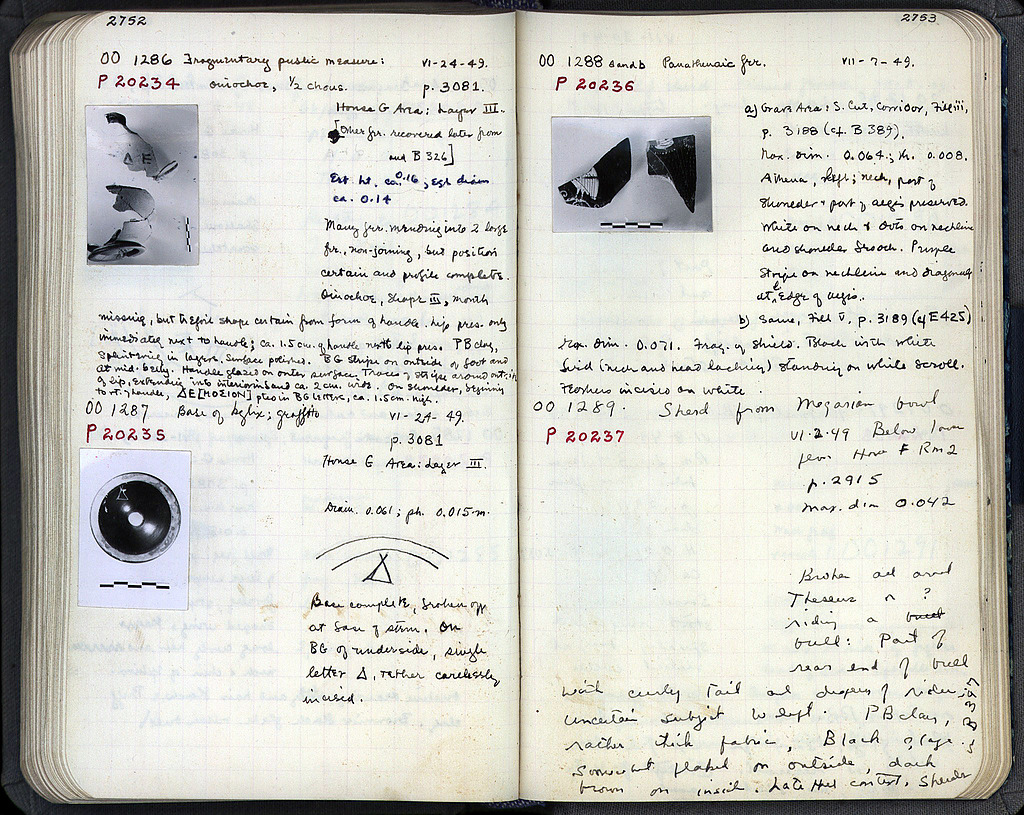 2752
OO 1286 Fragmentary public measure: VI-24-49.
P 20234 oinochoe, 1/2 chous. p. 3081.
House G Area: Layer III.
[Other frr. recovered later from
and B 326]
Est. ht. ca. 0.16; Est. diam
ca. 0.14
Many frr. mending into 2 large
frr., non-joining, but position
certain and profile complete.
Oinochoe, shape III, mouth
missing, but trefoil shape certain from form of handle. Lip pres. only
immediately next to handle; ca. 1.5 cm. of handle next lip pres. PB clay,
splintering in layers. Surface polished. BG stripe on outside of foot and
at mid-belly. Handle glazed on outer surface. Traces of stripe around outside
of lip, extending into interior in band ca. 2 cm. wide. On shoulder, beginning
to rt. of handle, ΔE[MOΣION] ptd in BG letters, ca. 1.5 cm. high.
ΔE
OO 1287 Base of kylix; graffito VI-24-49.
P 20235 p. 3081
House G Area: Layer III.
Diam. 0.061; ph. 0.015 m.
Base complete, broken off
at base of stem. On
BG of underside, single
letter Δ, rather carelessly
incised.
2753
OO 1288 a and b Panathenaic frr. VII-7-49.
P 20236
a) Grave Area: S. Cut, Corridor, Fill iii,
p. 3188 (cf. B 389).
Max. dim. 0.064; th. 0.008.
Athena, left; neck, part of
shoulder & part of aegis preserved.
White on neck & dots on neckline
and shoulder brooch. Purple
stripe on neckline and diagonally
at l. edge of aegis.
b) Same, Fill V. p. 3189 (cf E 425)
Max. dim. 0.071. Frag. of shield. Black with white
bird (neck and head lacking) standing on white scroll.
Feathers incised on white.
OO 1289. Sherd from Megarian bowl
P 20237 VI-2-49 Below
House F Rm 2
p. 2915
Max. dim 0.042
Broken all around
Theseus or ?
riding a bull
bull: Part of
rear end of bull
with curly tail and drapery of rider.
Uncertain subject to left. PB clay,
rather thick fabric, Black glaze
somewhat flaked on outside, dark
brown on inside. Late Hell context, Sherds